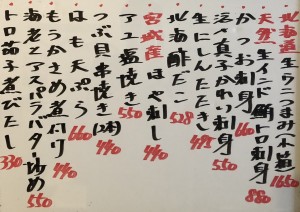 北海道生ウニつまみ(小箱)1650
天然生インド鮪トロ刺身880
かつお刺身660
活〆真子かれい刺身550
生にしんたたき495
北海酢だこ528
宮城産ほや刺し440
アユ塩焼き550
つぶ貝串焼き(2本)440
はも天ぷら660
もうかさめ煮付け440
海老とアスパラバター炒め550
トロ茄子煮びたし330